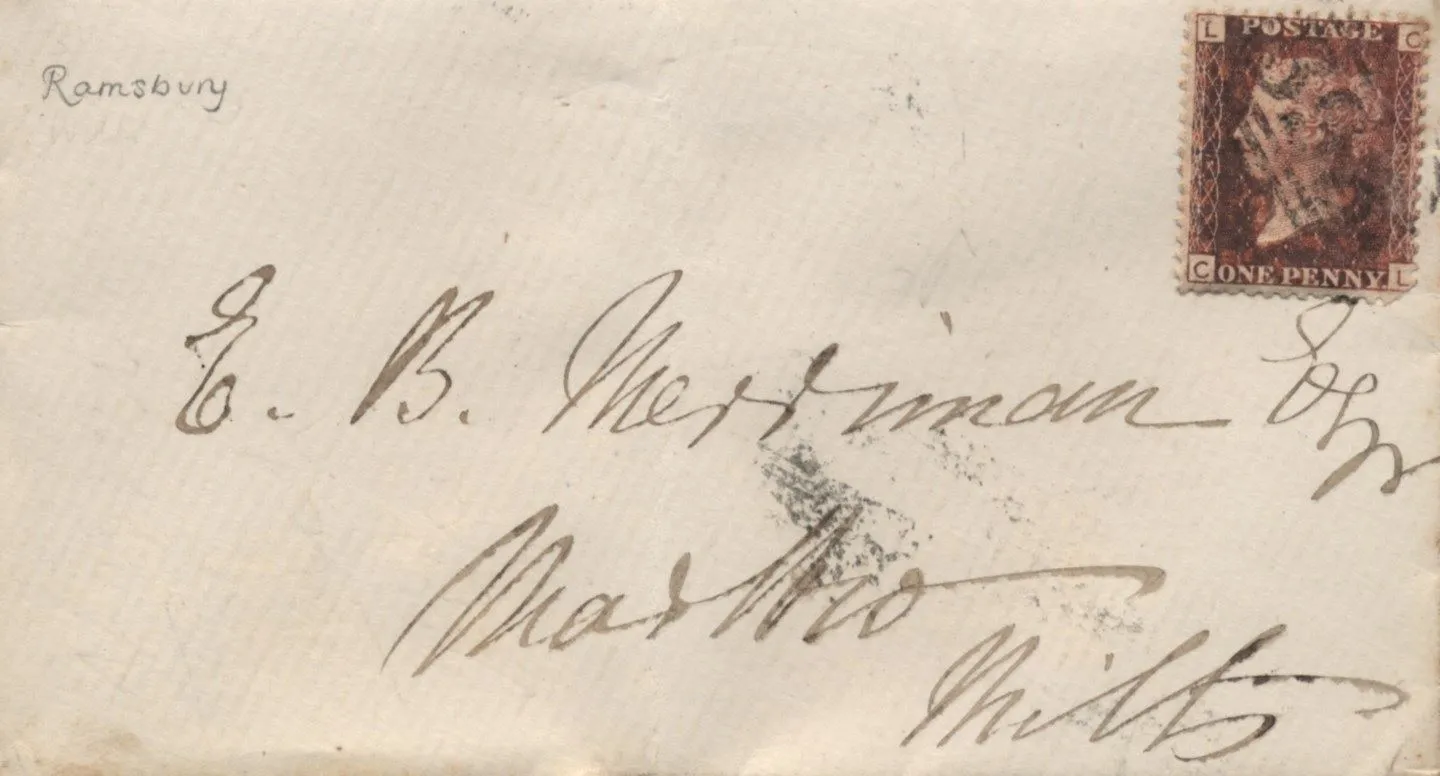 L POSTAGE C
Ramsbury
C ONE PENNY. L
E. B. Merriman Esqr
Marlbro
Wilts